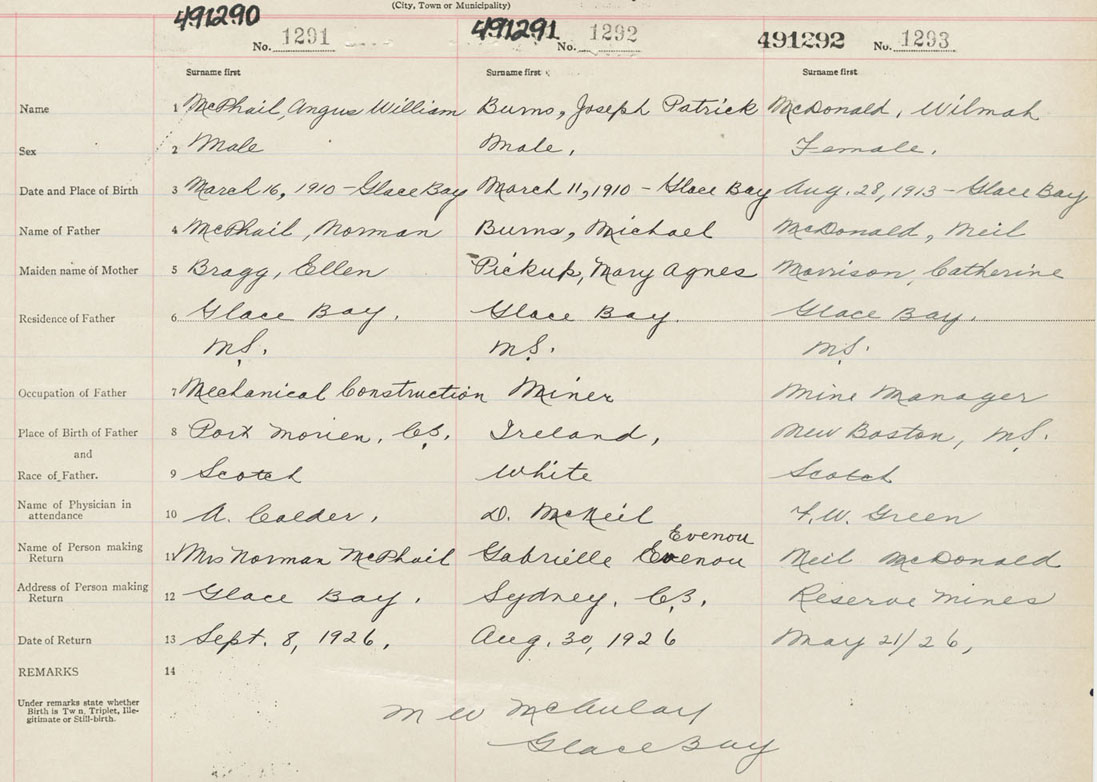 (City, Town or Municipality)
491290 491291 491292
No. 1291 No. 1292 No. 1293
Surname first Surname first Surname first
Name 1 McPhail, Angus William Burns, Joseph Patrick McDonald, Wilmah
Sex 2 Male Male, Female.
Date and Place of Birth 3 March 16, 1910 - Glace Bay March 11, 1910 - Glace Bay Aug. 28, 1913 - Glace Bay
Name of Father 4 McPhail, Norman Burns, Michael McDonald, Neil
Maiden name of Mother 5 Bragg, Ellen Pickup, Mary Agnes Morrison, Catherine
Residence of Father 6 Glace Bay. Glace Bay. Glace Bay.
N.S. N.S. N.S.
Occupation of Father 7 Mechanical Construction Miner Mine Manager
Place of Birth of Father 8 Port Morien, C.B. Ireland, New Boston, N.S.
and
Race of Father. 9 Scotch White Scotch
Name of Physician in attendance 10 A. Calder. D. McNeil F.W. Green
Evenou
Name of Person making Return 11 Mrs Norman McPhail Gabrielle Evenou Neil McDonald
Address of Person making Return 12 Glace Bay. Sydney, C.B. Reserve Mines
Date of Return 13 Sept. 8, 1926, Aug. 30, 1926 May 21/26,
REMARKS 14
Under remarks state whether
Birth is Twn. Triplet, Ille-
gitimate or Still-birth.
M W McAulay
Glace Bay